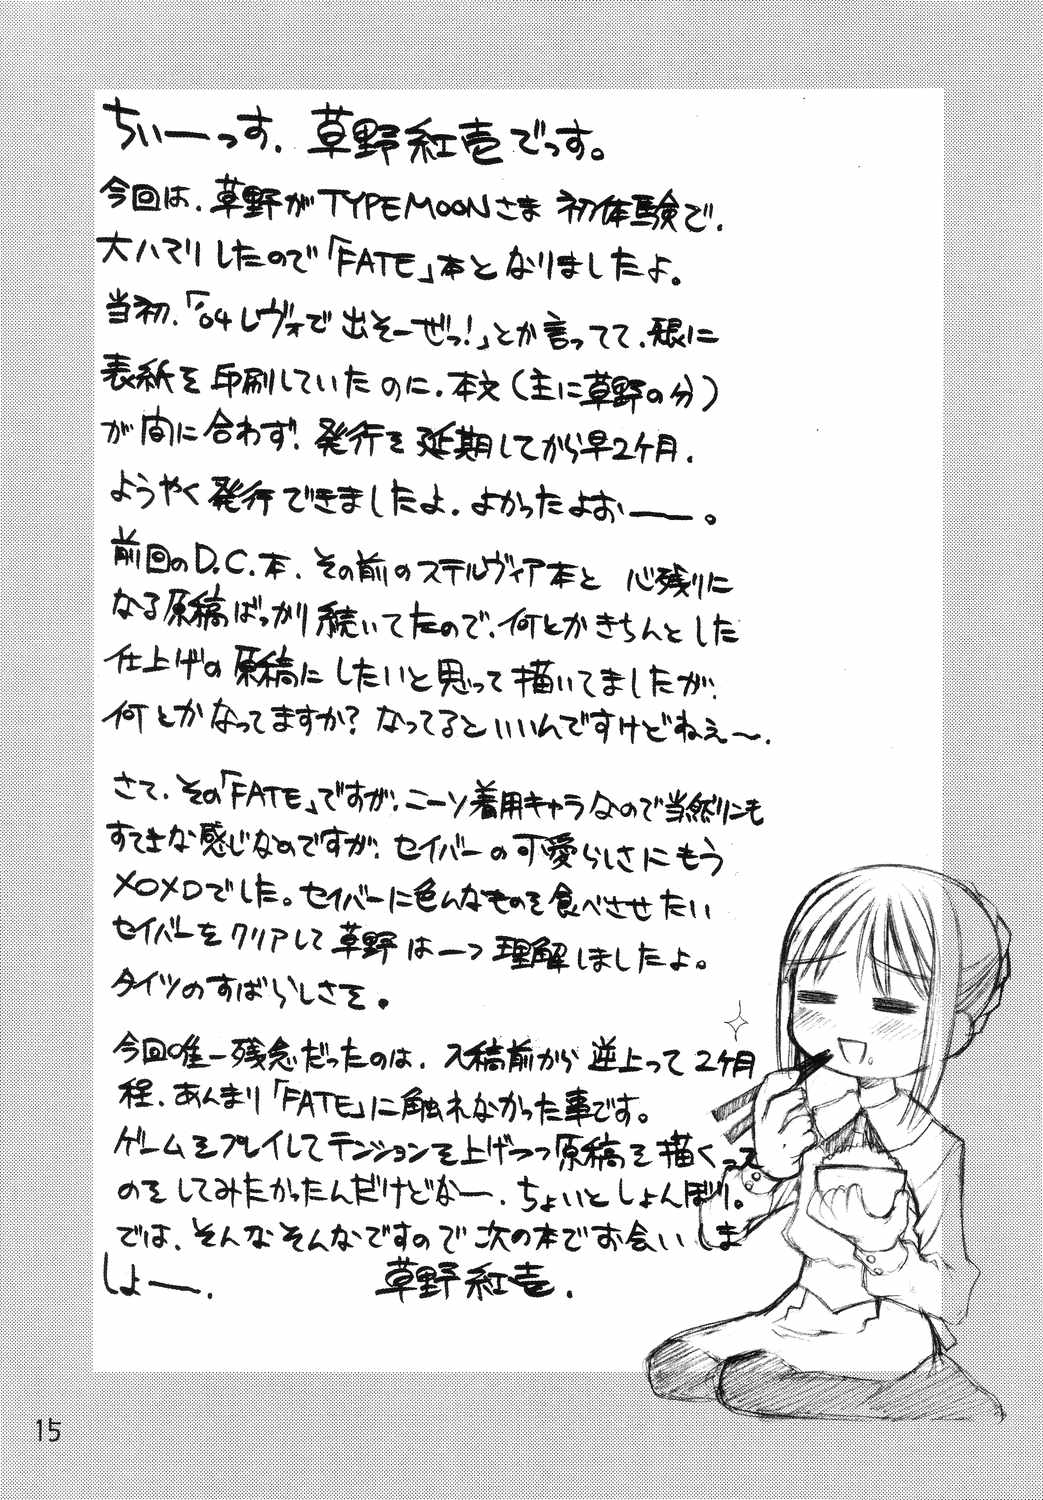 ちぃーっす、草野紅壱でっす。
今回は、草野がTYPEMOONさま 初体験で、
大ハマリしたので「FATE」本となりましたよ。
当初、「'04レヴォで出そーぜっ!」とか言ってて、
表紙を印刷していたのに、本文(主に草野の分)
が間に合わず、発行を延期してから早2ヶ月、
ようやく発行できましたよ、よかったよおー。
前回のD.C.本、その前のステルヴィア本と 心残りに
なる原稿ばっかり続いてたので、何とかきちんとした
仕上げの原稿にしたいと思って描いてましたが、
何とかなってますか?なってるといいんですけどねぇ〜、
さて、その「FATE」ですが、ニーソ着用キャラなので当然リンも
すてきな感じなのですが、セイバーの可愛らしさにもう
メロメロでした。セイバーに色んなものを食べさせたい
セイバーをクリアして草野は一つ理解しましたよ。
タイツのすばらしさを。
今回唯一残念だったのは、入稿前から逆上って2ヶ月
程、あんまり「FATE」に触れなかった事です。
ゲームをプレイしてテンションを上げつつ原稿を描くって
のをしてみたかったんだけどなー、ちょいとしょんぼり。
では、そんなそんなですので次の本でお会いしま
しょー、 草野紅壱、
15